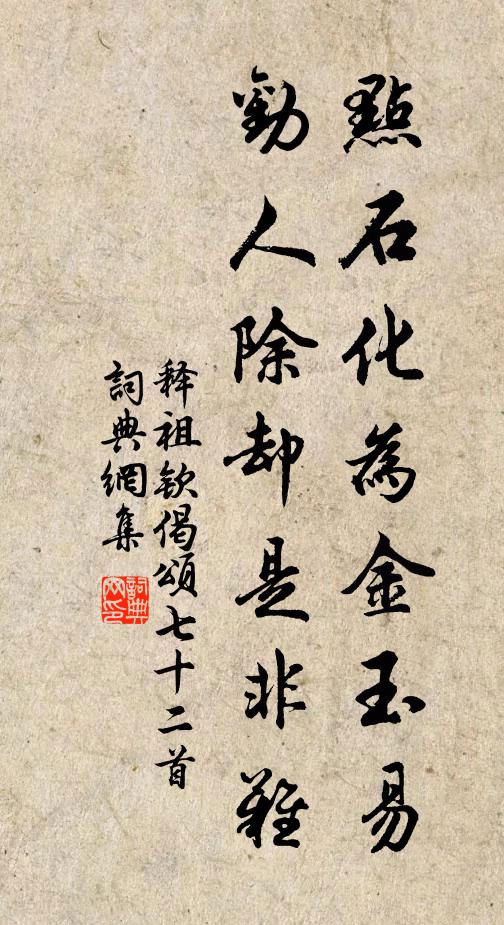 點石化為金玉易
勸人除却是非難
释祖欽偈頌七十二首
詞典網集
詞典
网印